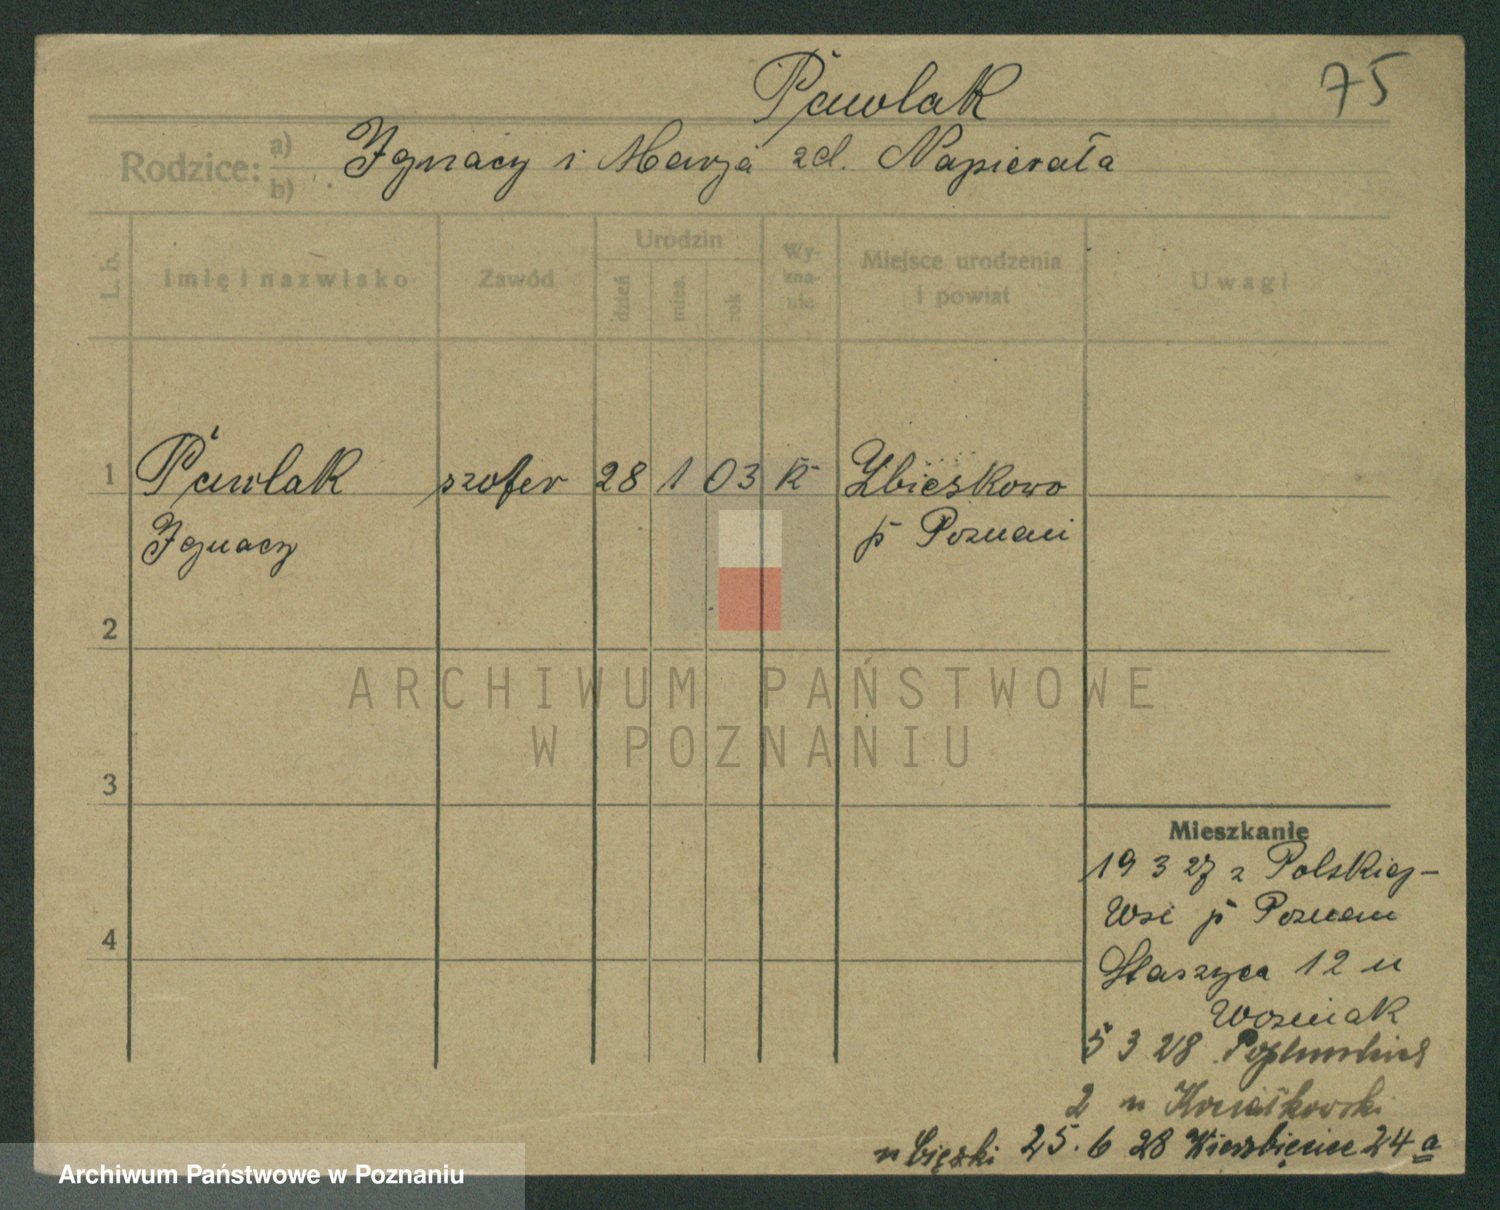 Pawlak
75
Rodzice: a) b)
Ignacy i Marja zd. Napierała
L.b.
Imię i nazwisko
Zawód
Urodzin
dzień
mies.
rok
Wy-
zna-
nie
Miejsce urodzenia
i powiat
Uwagi
1 Pawlak szofer 28 1 03 k Zbieskowo
Ignacy p Poznań
2
3
4
ARCHIWUM PAŃSTWOWE
W POZNANIU
Mieszkanie
19 3 27 z Polskiej-
Wsi p Poznań
Staszyca 12 u
Wozniak
5 3 28
2 u
25.6 28 Wierzbięcice 24 a
Archiwum Państwowe w Poznaniu